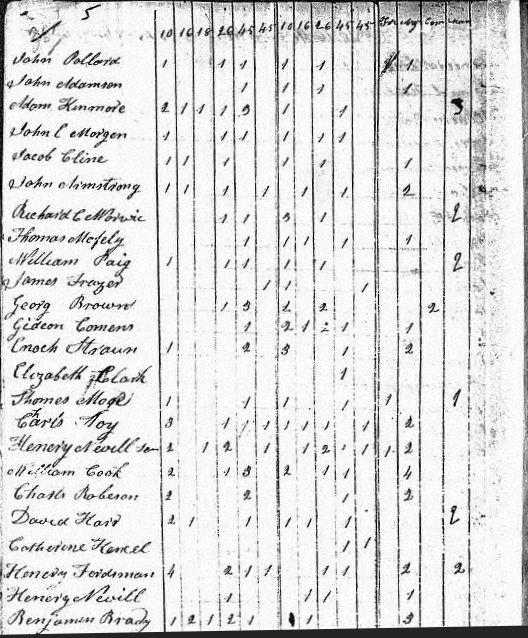 5
10 16 18 26 45 45 10 16 26 45 45 For Agr Com
John Pollard 1 1 1 1 1 1
John Adamson 1 1 1 1
Adam Kinmore 2 1 1 1 3 1 1 3
John C Morgen 1 1 1 1 1 1
Jacob Cline 1 1 1 1 1 1
John Armstrong 1 1 1 1 1 1 2
Richard C 1 1 3 1 2
Thomas 1 1 1 1 1
William Paig 1 1 1 1 1 2
James Frazer 1 1 1
Georg Brown 1 3 1 2 2
Gideon Comens 1 2 1 2 1 1
Enoch Straun 1 2 3 1 2
Elizabeth Clark 1
Thomes 1 1 1 1 1 1
Toy 3 1 1 1 1 1 1 2
Henery Nevill 2 1 2 1 1 2 1 1 1 2
William Cook 2 1 3 2 1 1 4
Charls Robeson 2 2 1 2
David Hard 2 1 1 1 1 1 2
Catherine 1 1
Henery 4 2 1 1 1 1 2 2
Henery Nevill 1 1 1 1
Benjamen Brady 1 2 1 2 1 1 1 3